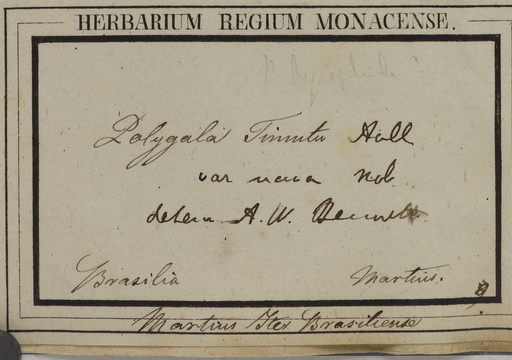 HERBARIUM REGIUM MONACENSE.
P.
Polygala Timoutou Aubl
var nova Nob
determ. A. W. Bennett.
Brasilia Martius.
Martius Iter Brasiliense